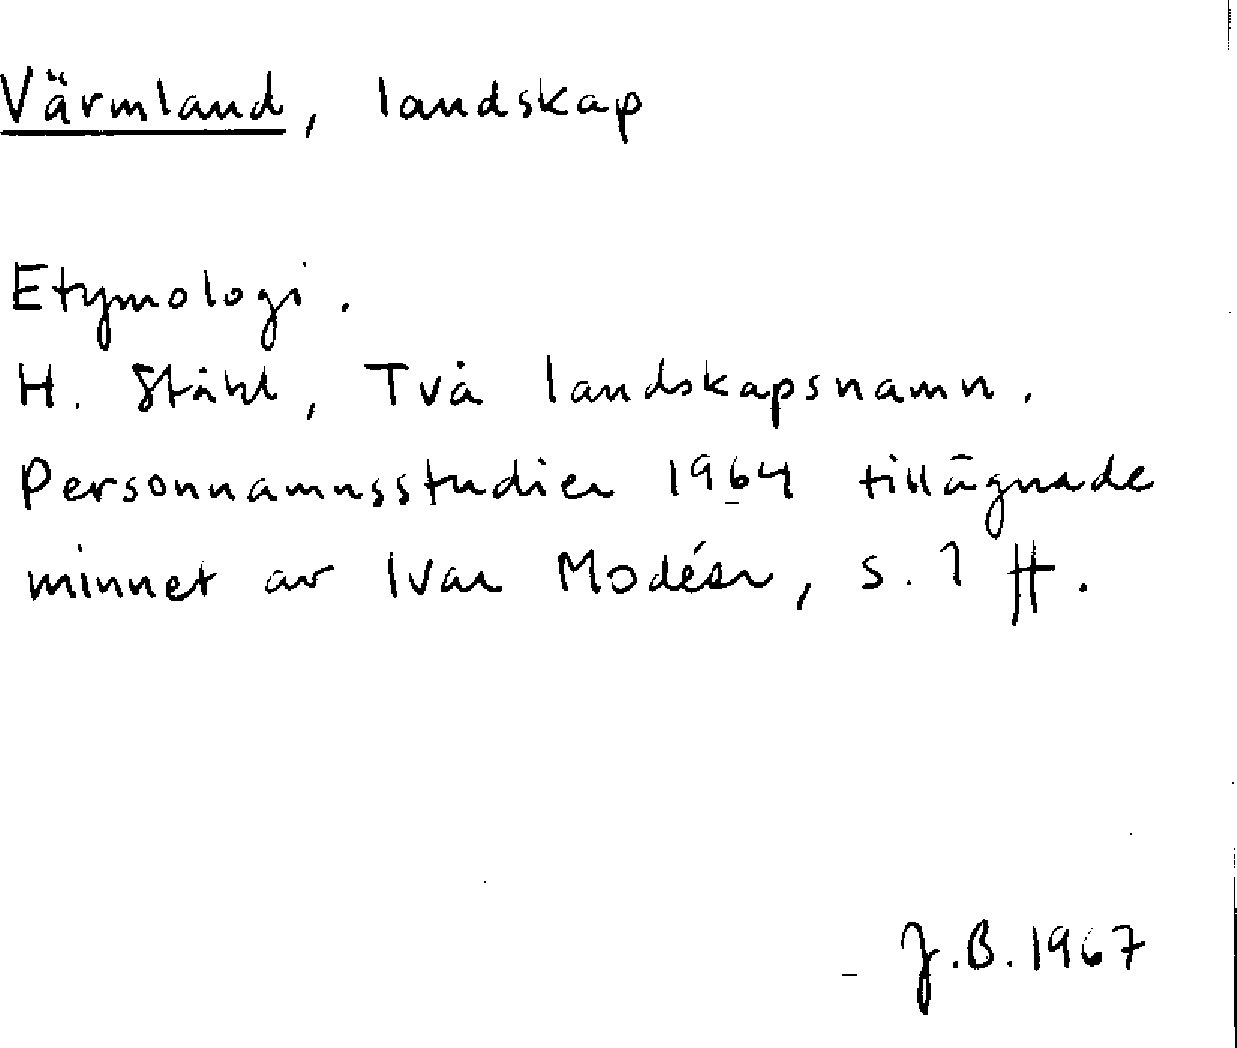 Värmland, landskap
Etymologi.
H. Ståhl, Två landskapsnamn.
Personnamnsstudier 1964 tillägnade
minnet av Ivar Modéer, s. 1 ff.
J.B. 1967